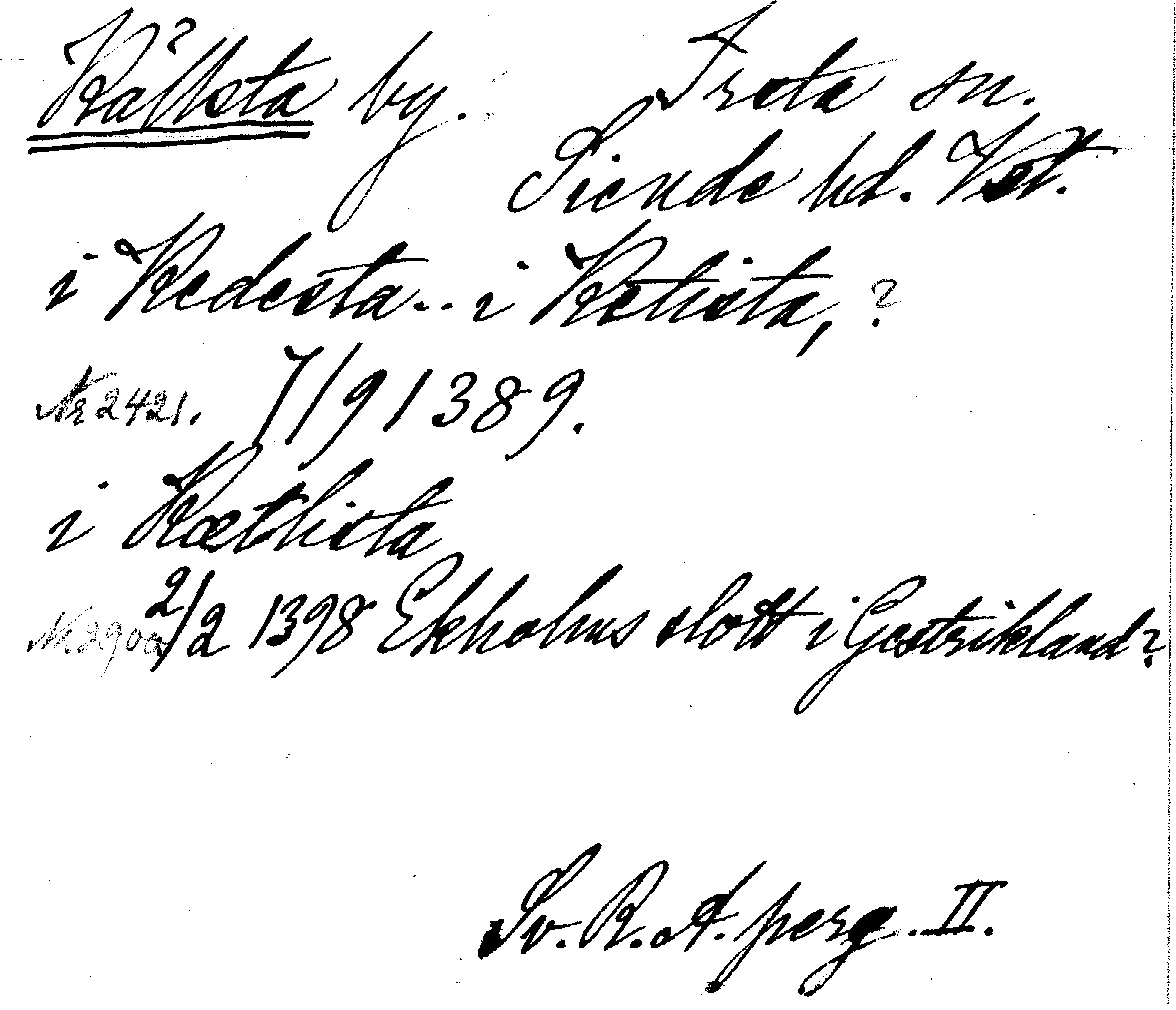 Källsta by. Irsta sn.
Siende hd. Vstl.
i Kedesta.. i Ketista, ?
Nr 2421. 7/9 1389.
i Kæthista
Nr 2902 2/2 1398 Ekholms slott i Gestrikland?
Sv. R. A. perg. II.